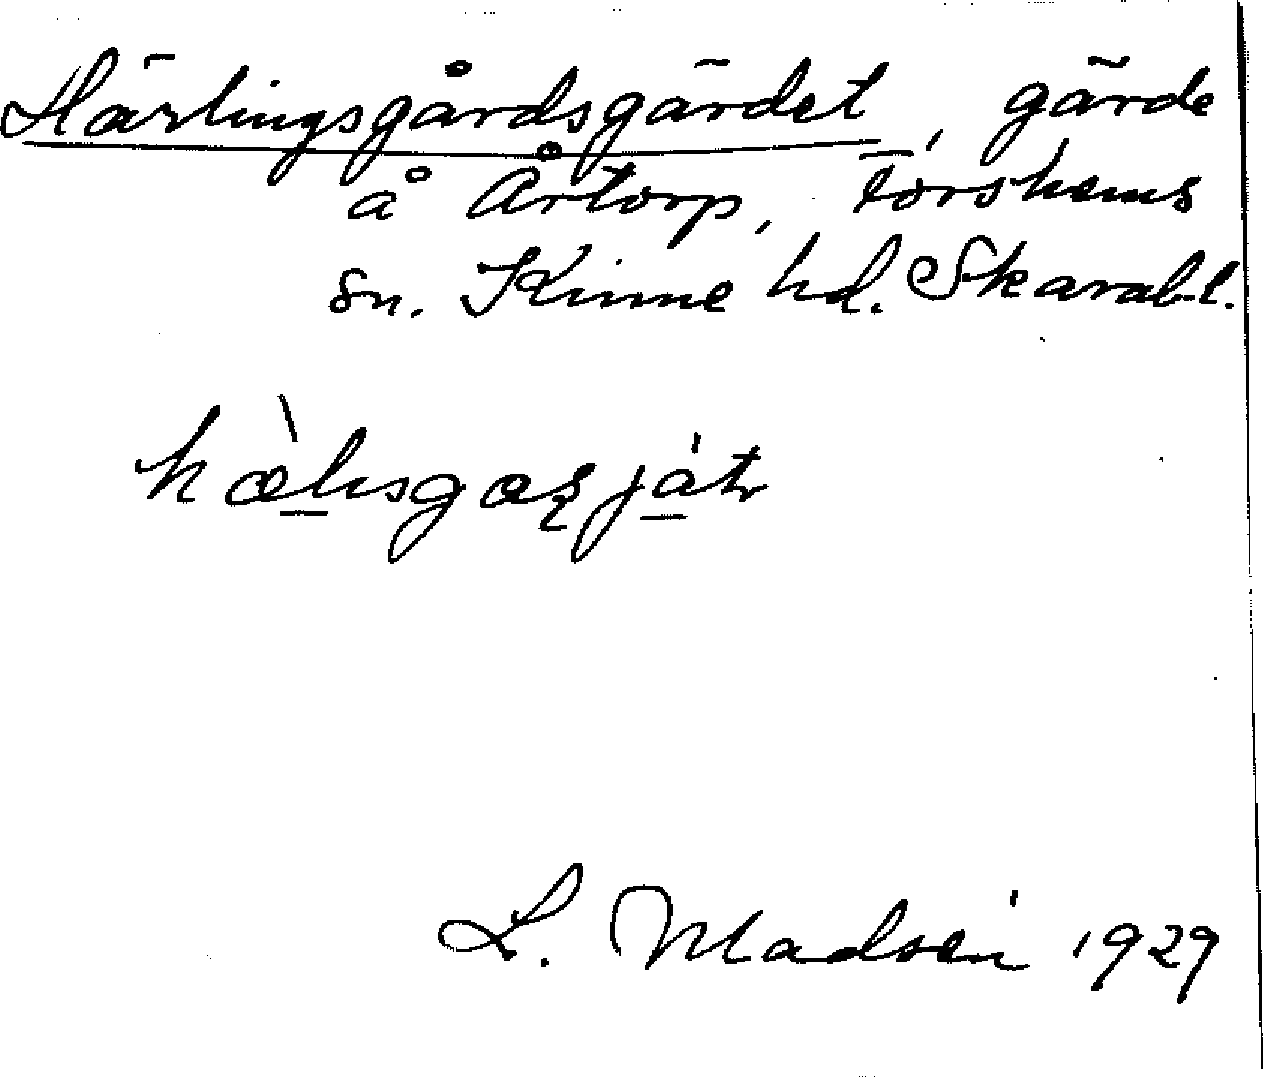 Härlingsgårdsgärdet, gärde
å Årtorp, Forshems
sn. Kinne hd. Skarab.l.
L. Madsén 1929